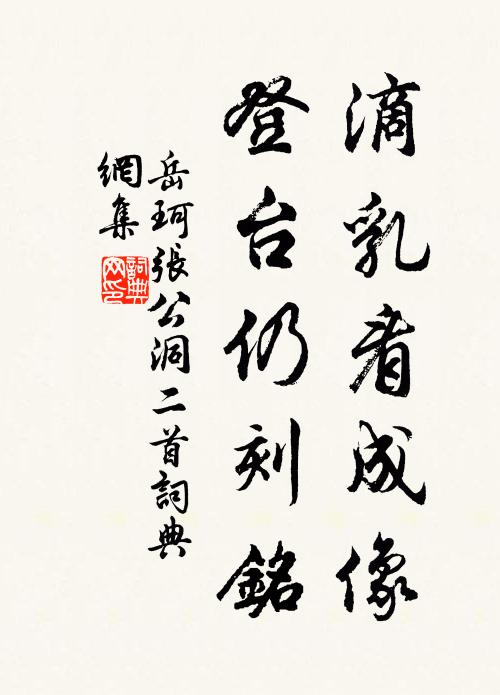 滴乳看成像
登台仍刻銘
岳珂張公洞二首詞典
網集
詞典
网印